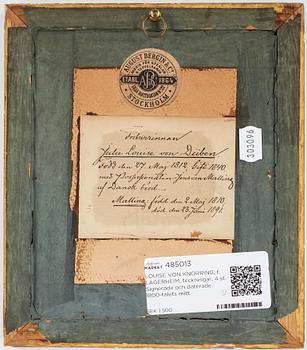 AUGUST BERGIN & Co.
ETABL. 1864
STOCKHOLM
Friherrinnan
Julie Louise von Düben.
född den 27 Maj 1812. Gift 1840
med
von Malling
af Dansk börd.
Malling: född den 2 Maj 1810
död den 23 Juni 1891.
303096
MARKET 485013
LOUISE VON KNORRING, f.
LAGERHEIM, teckningar, 4 st.
Signerade och daterade.
1800-talets mitt.
SEK 1 500